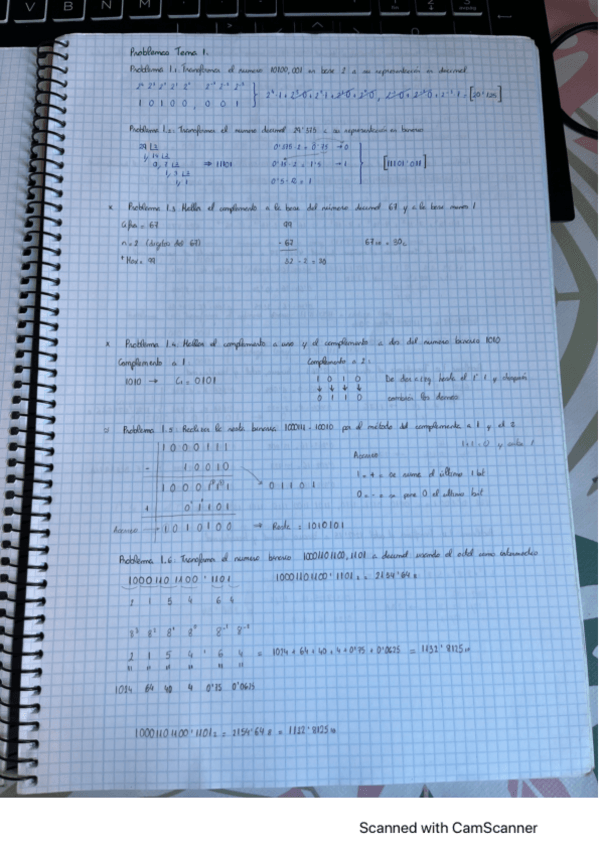 Problemas Tema 1.
Problema 1.1: Transforma el numero 10100,001 en base 2 a su representación en decimal
1 0 1 0 0 , 0 0 1
[20'125]
Problema 1.2: Transforma el numero decimal 29'375 a su representación en binario
29 ⇒ 11101
0'375 · 2 = 0'75 → 0
0'75 · 2 = 1'5 → 1
0'5 · 2 = 1
[11101'011]
Problema 1.3 Hallar el complemento a la base del número decimal 67 y a la base menos 1
99
n = 2 (dígitos del 67)
- 67
Max = 99
Problema 1.4: Hallar el complemento a uno y el complemento a dos del numero binario 1010
Complemento a 1:
Complemento a 2:
1010 → C1 = 0101
1 0 1 0
↓ ↓ ↓ ↓
0 1 1 0
De dcha a izq. hasta el 1º 1 y después
cambian los demás
Problema 1.5: Realiza la resta binaria 1000111 - 10010 por el método del complemento a 1 y a 2
1 0 0 0 1 1 1
- 1 0 0 1 0
0 1 1 0 1
+ 0 1 1 0 1
Acarreo
1 0 1 0 1 0 0 → Resta = 1010101
Acarreo
1 = + = se suma al último 1 bit
0 = - = se pone 0 al último bit
Problema 1.6: Transforma el numero binario 10001101100,1101 a decimal usando el octal como intermedio
10001101100'1101
10001101100'1101₂ = 2154'64₈
2 1 5 4 6 4
8³ 8² 8¹ 8⁰ 8⁻¹ 8⁻²
2 1 5 4 ' 6 4 = 1024 + 64 + 40 + 4 + 0'75 + 0'0625 = 1132'8125₁₀
1024 64 40 4 0'75 0'0625
10001101100'1101₂ = 2154'64₈ = 1132'8125₁₀
Scanned with CamScanner